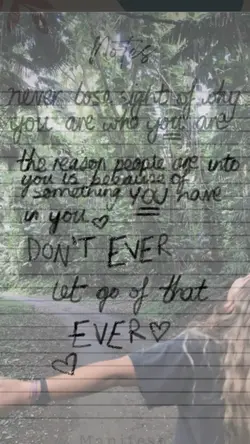 Notes
never lose sight of why
you are who you are
the reason people are into
you is because of
something YOU have
in you
DON'T EVER
let go of that
EVER